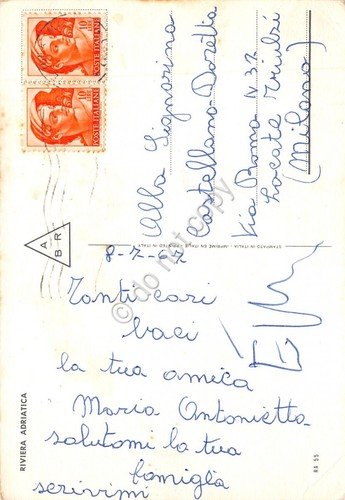 POSTE ITALIANE
POSTE ITALIANE
Alla Signorina
Castellano Doretta
Via Roma N 32
Locate Triulzi
(Milano)
STAMPATO IN ITALIA - IMPRIMÉ EN ITALIE - PRINTED IN ITALY
A
B R
8-7-67
Tanti cari
baci
la tua amica
Maria Antonietta
salutami la tua
famiglia
scrivimi
RIVIERA ADRIATICA
RA 55
do not copy